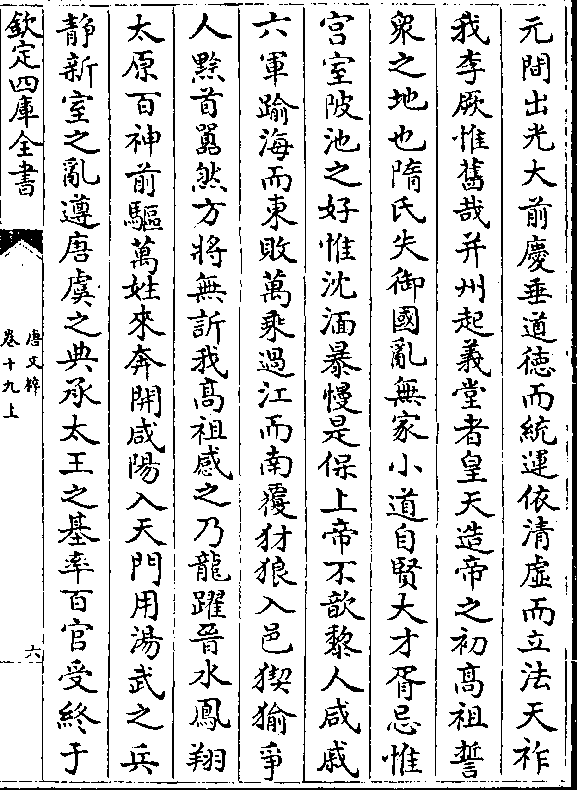 元間出光大前慶垂道徳而統運依清虚而立法天祚
我李厥惟舊哉并州起義堂者皇天造帝之初髙祖誓
衆之地也隋氏失御國亂無家小道自賢大才胥忌惟
宫室陂池之好惟沈湎暴慢是保上帝不歆黎人咸戚
六軍踰海而東敗萬乘過江而南覆犲狼入邑猰㺄爭
人黔首嚣然方將無訴我髙祖感之乃龍躍晉水鳳翔
太原百神前驅萬姓來奔開咸陽入天門用湯武之兵
靜新室之亂遵唐虞之典承太王之基率百官受終于
欽定四庫全書
唐文粹
卷十九上
六